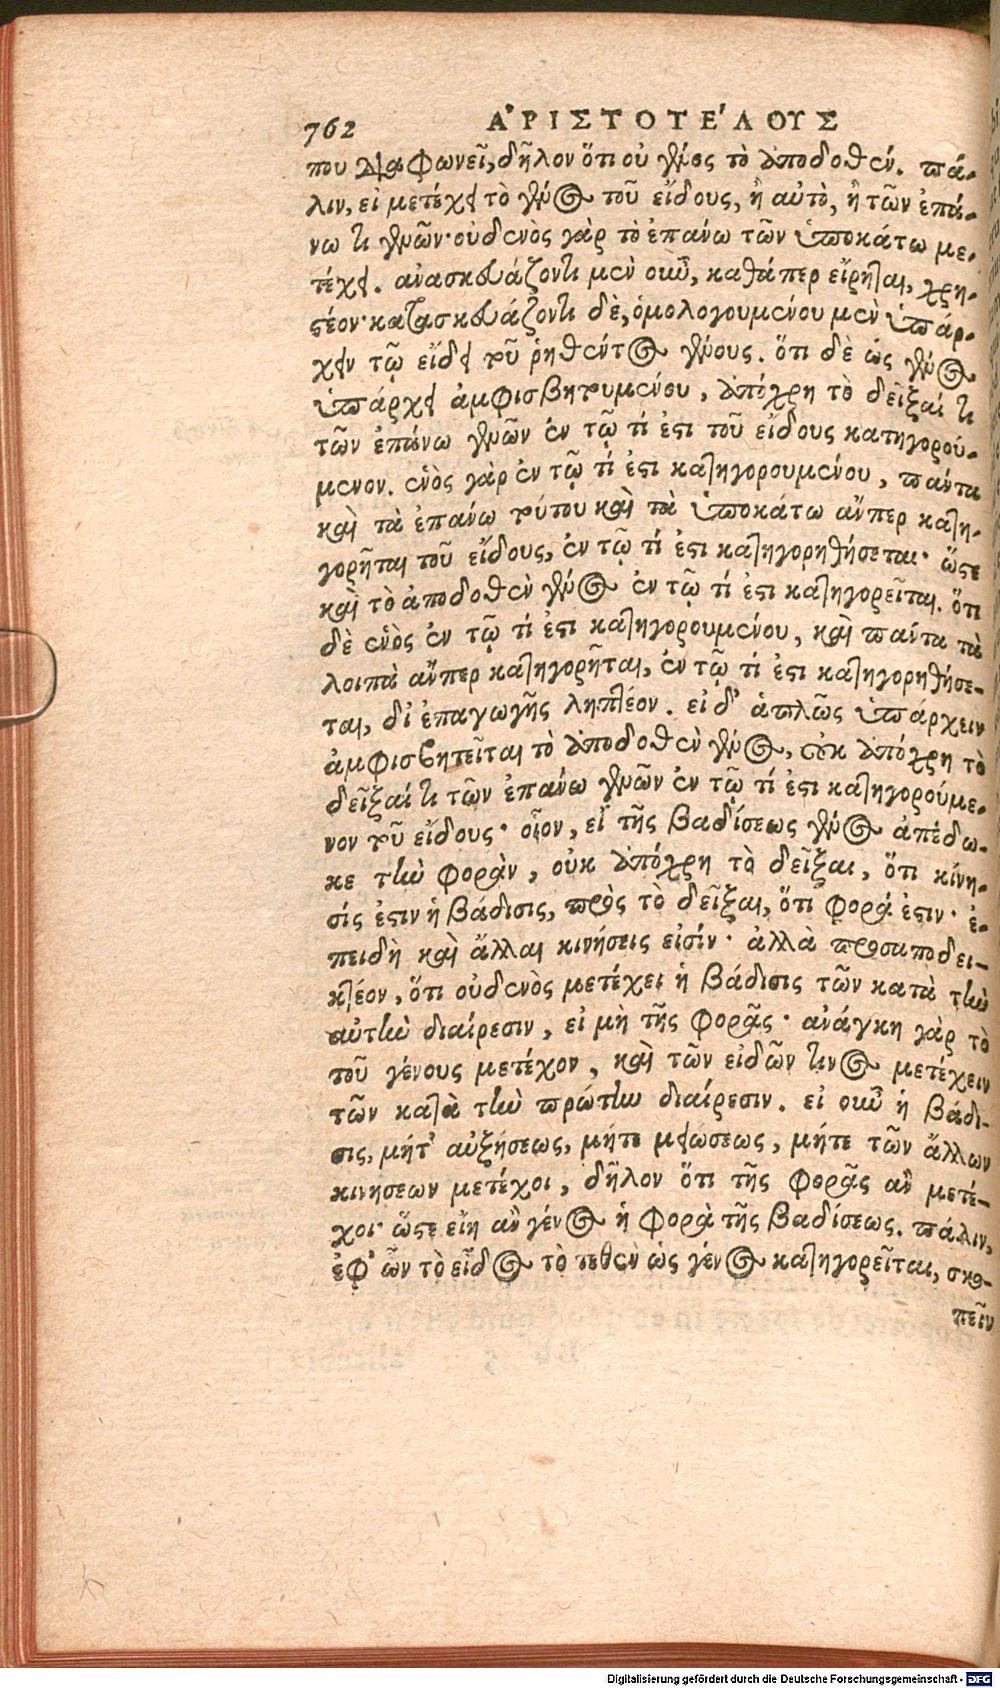 762 ἈΡΙΣΤΟΤΕ´ΛΟΥΣ
που διαφωνεῖ, δῆλον ὅτι οὐ γένος τὸ ἀποδοθέν. πά-
λιν, εἰ μετέχει τὸ γένος τοῦ εἴδους, ἢ αὐτὸ, ἢ τῶν ἐπά-
νω τι γενῶν· οὐδενὸς γὰρ τὸ ἐπάνω τῶν ὑποκάτω με-
τέχει. ἀνασκευάζοντι μὲν οὖν, καθάπερ εἴρηται, χρη-
στέον· κατασκευάζοντι δὲ, ὁμολογουμένου μὲν ὑπάρ-
χειν τῷ εἴδει τοῦ ῥηθέντος γένους. ὅτι δὲ ὡς γένος
ὑπάρχει ἀμφισβητουμένου, ἀπόχρη τὸ δεῖξαί τι
τῶν ἐπάνω γενῶν ἐν τῷ τί ἐστι τοῦ εἴδους κατηγορού-
μενον. ἑνὸς γὰρ ἐν τῷ τί ἐστι κατηγορουμένου, πάντα
καὶ τὰ ἐπάνω τούτου καὶ τὰ ὑποκάτω ἄνπερ κατη-
γορῆται τοῦ εἴδους, ἐν τῷ τί ἐστι κατηγορηθήσεται· ὥστε
καὶ τὸ ἀποδοθὲν γένος ἐν τῷ τί ἐστι κατηγορεῖται. ὅτι
δὲ ἑνὸς ἐν τῷ τί ἐστι κατηγορουμένου, καὶ πάντα τὰ
λοιπὰ ἄνπερ κατηγορῆται, ἐν τῷ τί ἐστι κατηγορηθήσε-
ται, δι' ἐπαγωγῆς ληπτέον. εἰ δ' ἁπλῶς ὑπάρχειν
ἀμφισβητεῖται τὸ ἀποδοθὲν γένος, οὐκ ἀπόχρη τὸ
δεῖξαί τι τῶν ἐπάνω γενῶν ἐν τῷ τί ἐστι κατηγορούμε-
νον τοῦ εἴδους· οἷον, εἴ τῆς βαδίσεως γένος ἀπέδω-
κε τὴν φορὰν, οὐκ ἀπόχρη τὸ δεῖξαι, ὅτι κίνη-
σίς ἐστιν ἡ βάδισις, πρὸς τὸ δεῖξαι, ὅτι φορά ἐστιν· ἐ-
πειδὴ καὶ ἄλλαι κινήσεις εἰσίν· ἀλλὰ προσαποδει-
κτέον, ὅτι οὐδενὸς μετέχει ἡ βάδισις τῶν κατὰ τὴν
αὐτὴν διαίρεσιν, εἰ μὴ τῆς φορᾶς· ἀνάγκη γὰρ τὸ
τοῦ γένους μετέχον, καὶ τῶν εἰδῶν τινὸς μετέχειν
τῶν κατὰ τὴν πρώτην διαίρεσιν. εἰ οὖν ἡ βάδι-
σις, μήτ' αὐξήσεως, μήτε μειώσεως, μήτε τῶν ἄλλων
κινησεων μετέχοι, δῆλον ὅτι τῆς φορᾶς ἂν μετέ-
χοι· ὥστε εἴη ἂν γένος ἡ φορὰ τῆς βαδίσεως. πάλιν,
ἐφ' ὧν τὸ εἶδος τὸ τεθὲν ὡς γένος κατηγορεῖται, σκο-
πεῖν
Digitalisierung gefördert durch die Deutsche Forschungsgemeinschaft - DFG